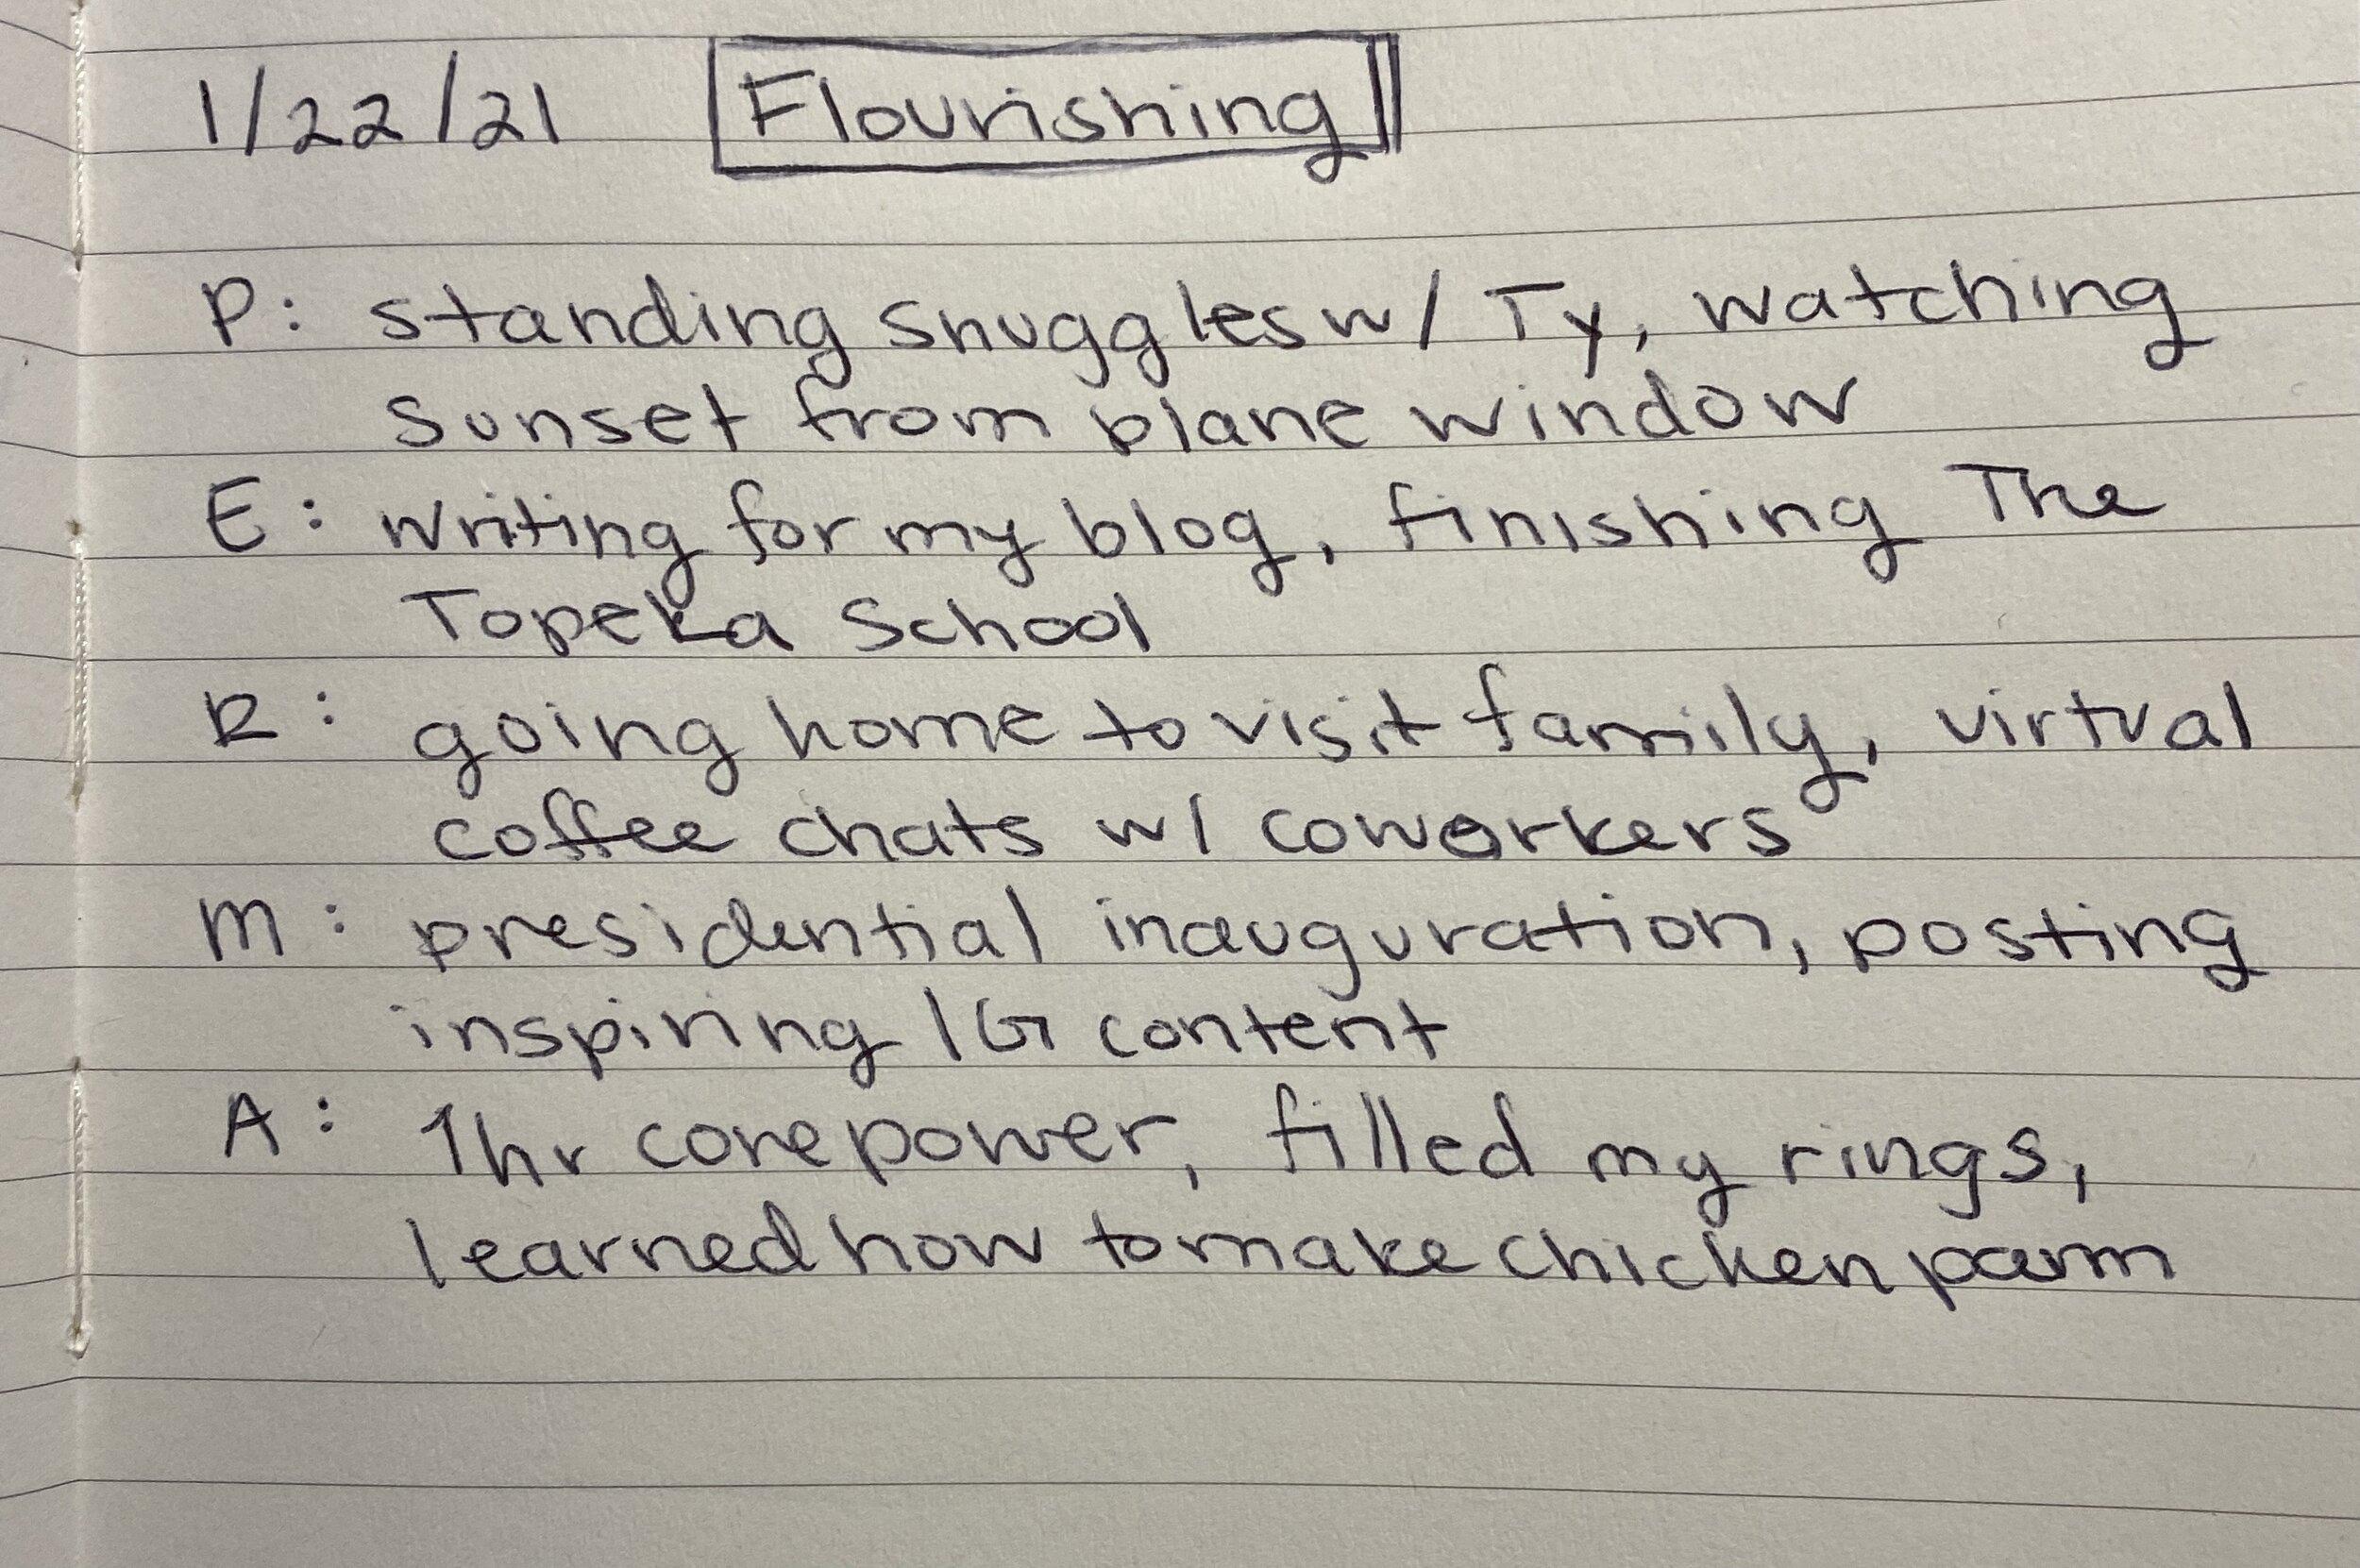 1/22/21 Flourishing
P: standing snuggles w/ Ty, watching
sunset from plane window
E: writing for my blog, finishing The
Topeka School
R: going home to visit family, virtual
coffee chats w/ coworkers
M: presidential inauguration, posting
inspiring IG content
A: 1hr corepower, filled my rings,
learned how to make chicken parm